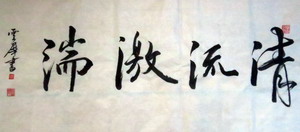 清流激湍